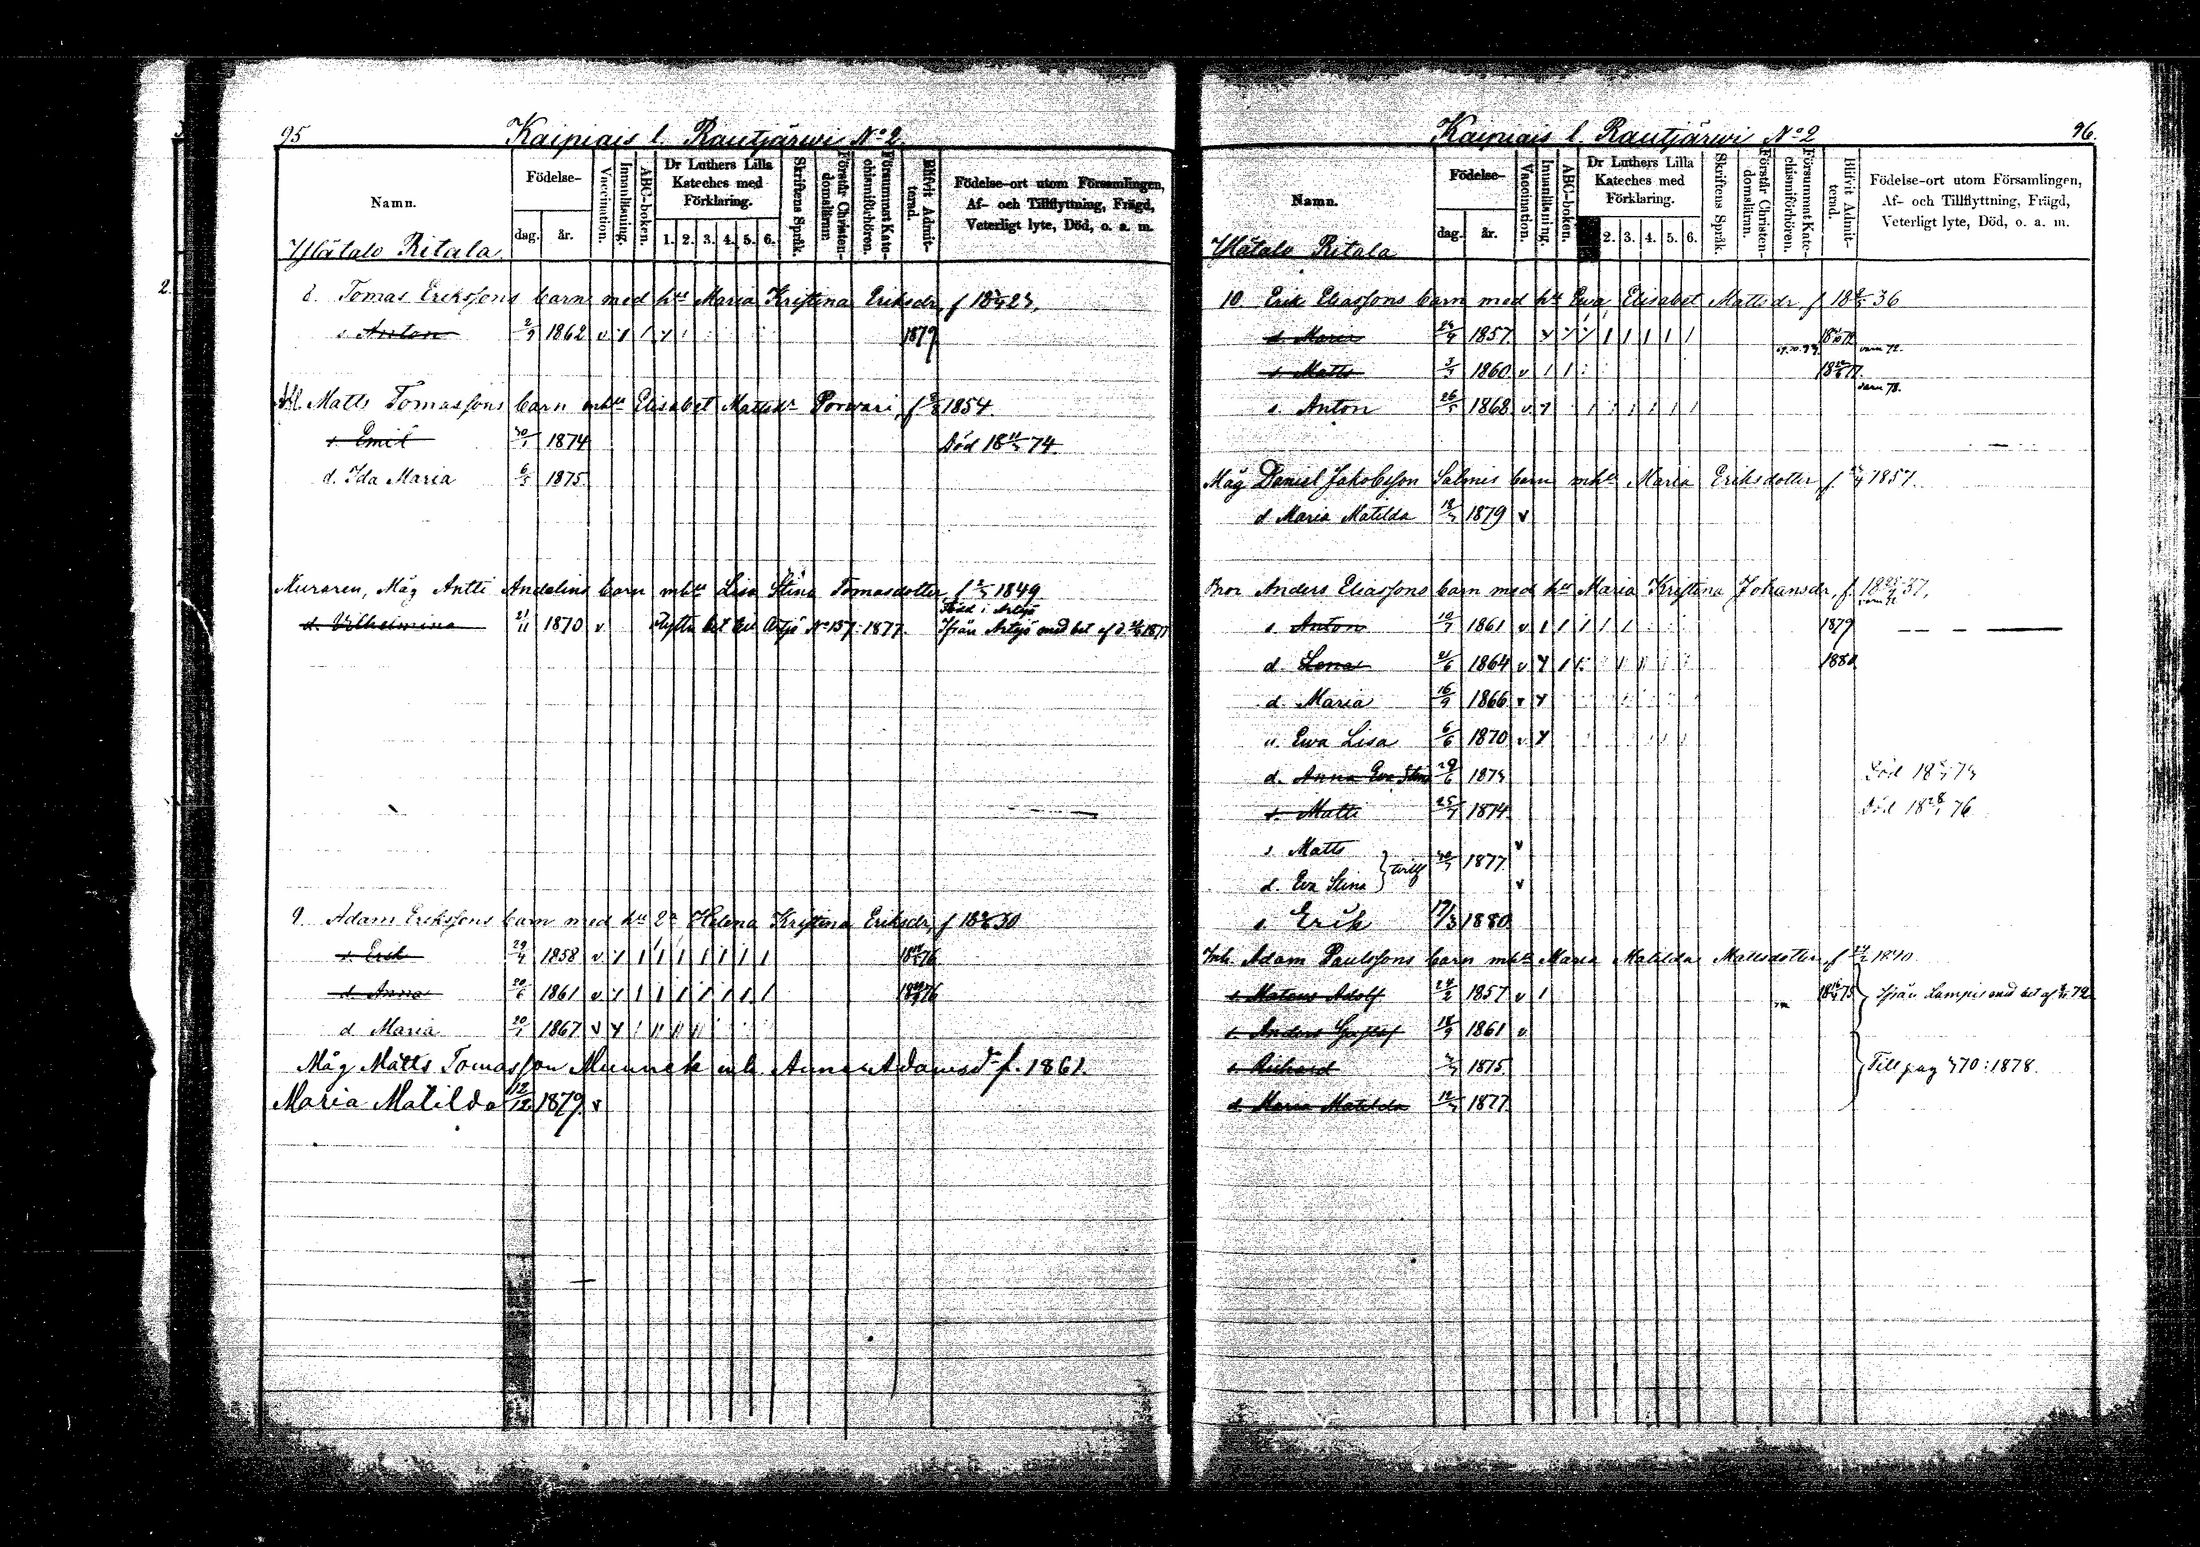 95 Kaipiais l. Rautjärwi No 2.
Namn. Födelse- dag. år. Vaccination. Innanläsning. ABC-boken. Dr Luthers Lilla Kateches med Förklaring. 1. 2. 3. 4. 5. 6. Skriftens Språk. Förstår Christendomslärnn. Försummat Katechismiförhören. Blifvit Admitterad. Födelse-ort utom Församlingen, Af- och Tillflyttning, Frägd, Veterligt lyte, Död, o. a. m.
Ylätalo Ritala
8. Tomas Erikssons barn med hu Maria Kristina Eriksdr, f
s. Anton 2/9 1862 v 1879
Matts Tomassons barn mhu Elisabet Mattsdr Porvari, f 1854
s. Emil 30/1 1874 Död 18 74.
d. Ida Maria 6/5 1875
Muraren, Måg Antti Andelins barn mhu Lisa Stina Tomasdotter, f 1849
Född i Artjö
d. Vilhelmina 21/11 1870 v Flytt. bet till Artjö No 157: 1877. Ifrån Artjö med bet af d. 1877
9. Adam Erikssons barn med hu 2a Helena Kristina Eriksdr, f 18 30
s. Erik 29/4 1858 v 18 76
d. Anna 20/6 1861 v 18 76
d. Maria 20/1 1867 v
Måg Matts Tomasson Munnek mh. Anna Adamsdr f. 1861.
Maria Matilda 12/12 1879 v
Kaipiais l. Rautjärwi No 2 96.
Namn. Födelse- dag. år. Vaccination. Innanläsning. ABC-boken. Dr Luthers Lilla Kateches med Förklaring. 2. 3. 4. 5. 6. Skriftens Språk. Förstår Christendomslärnn. Försummat Katechismiförhören. Blifvit Admitterad. Födelse-ort utom Församlingen, Af- och Tillflyttning, Frägd, Veterligt lyte, Död, o. a. m.
Ylätalo Ritala
10 Erik Eliassons barn med hu Ewa Elisabet Mattsdr f 18 36
d. Maria 1857 18 72
s. Matts 1860 v 18 77
s. Anton 26/5 1868 v
Måg Daniel Jakobsson Salmis barn mhu Maria Eriksdotter, f 1857.
d Maria Matilda 1879 v
Bror Anders Eliassons barn med hu Maria Kristina Johansdr, f. 18 37,
s. Anton 10/7 1861 v 1879
d. Lena 21/6 1864 v 1880
d. Maria 16/9 1866 v
d. Ewa Lisa 6/6 1870 v
d. Anna Eva Stina 29/6 1873 Död 18 73
s. Matti 25/7 1874 Död 18 76
s. Matts v
} tvill 1877.
d. Eva Stina v
s. Erik 17/3 1880
Inh. Adam Paulssons barn mhu Maria Matilda Mattsdotter, f 1840
s. Matous Adolf 24/2 1857 v 18 75 Ifrån Lampis med bet af 72
s. Anders Gustaf 18/9 1861 v
s. Richard 1875 Till pag 370: 1878.
d. Maria Matilda 1877